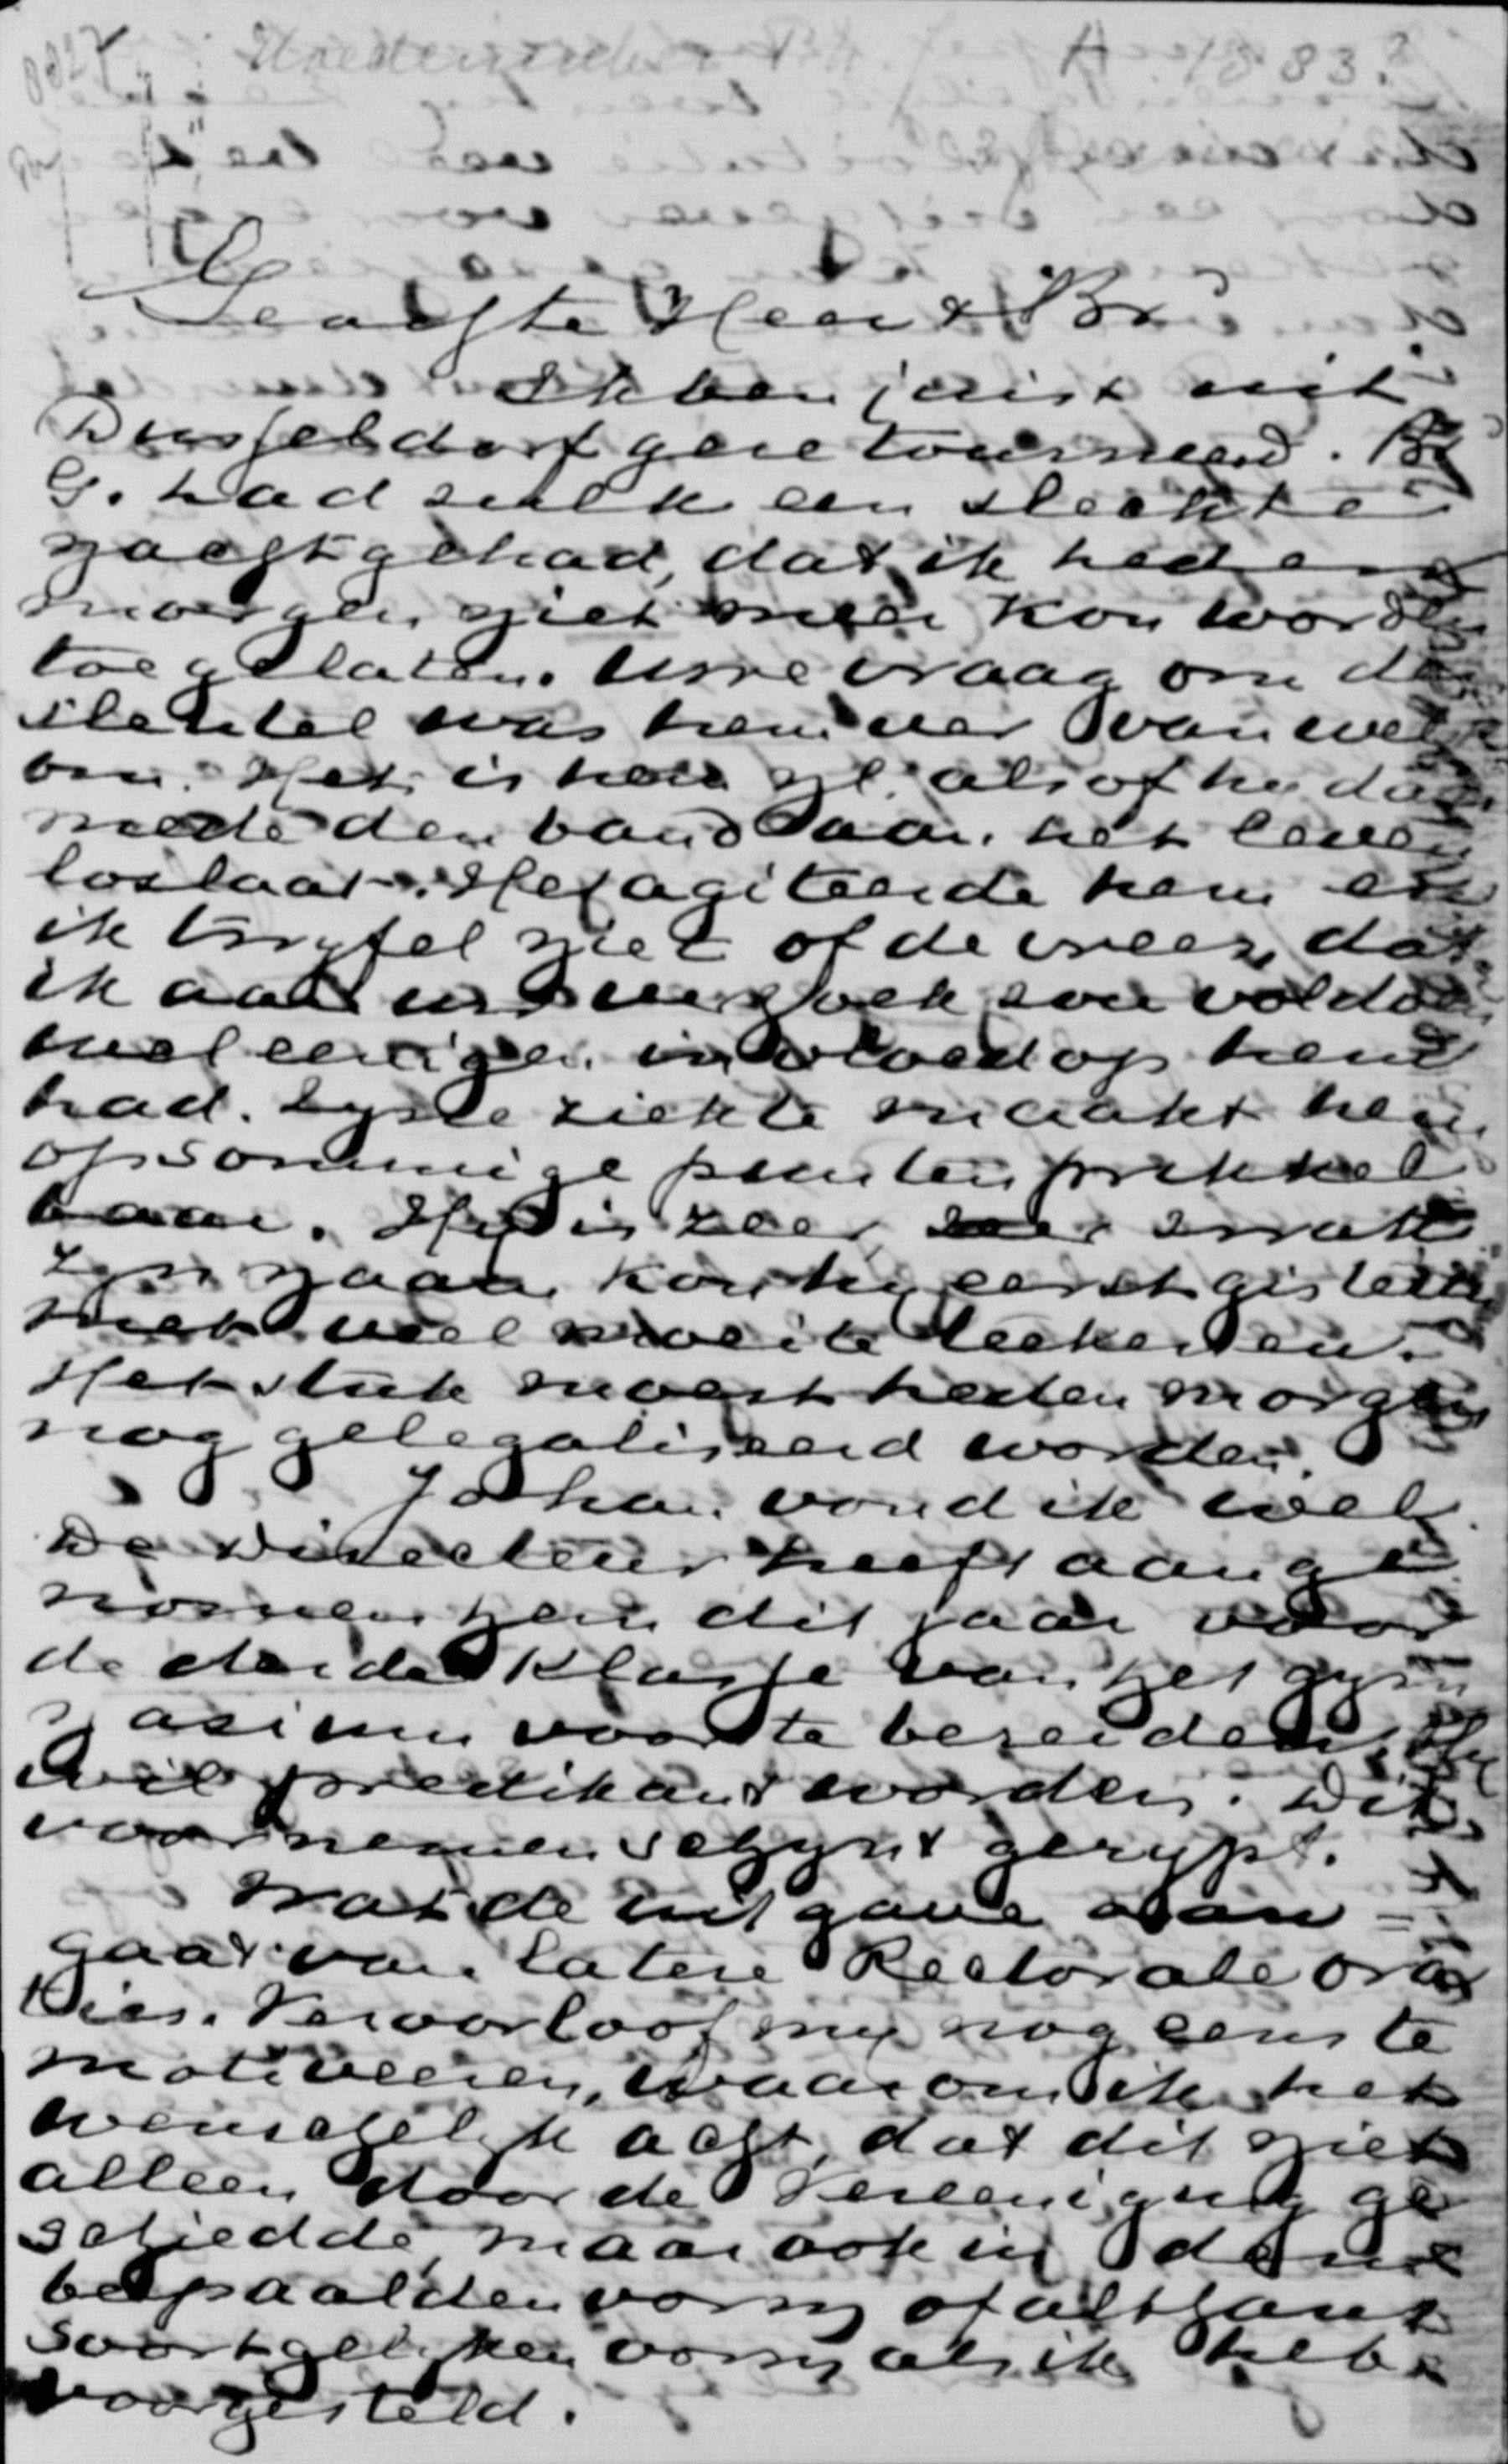 A 1883?
Geachte Heer & Br
Ik ben juist uit
Dusseldorf geretourneerd. Br
G. had zulk een slechte
nacht gehad, dat ik heden
morgen niet meer kon worden
toegelaten. Uwe vraag om de
sleutel was hem
om. Het is hem nl. alsof hij daar
mede den band aan het leven
loslaat. Het agiteerde hem en
ik twyfel niet of de vrees, dat
ik aan uw verzoek zou voldoen
wel eenigen invloed op hem
had. Zyne ziekte maakt hem
op sommige punten prikkel
baar. Hy is zeer zwak
Zyn naam kon hy eerst gisteren
met veel moeite teekenen.
Het stuk moest heden morgen
nog gelegaliseerd worden.
Johan vond ik wel.
De Directeur heeft aange
nomen hem dit jaar voor
de derde klasse van het gym
nasium voor te bereiden. Hy
wil predikant worden. Dit
voornemen schynt gerypt.
Wat de uitgave aan=
gaat van latere Rectorale ora
ties. Veroorloof my nog eens te
motiveeren, waarom ik het
wenschelyk acht, dat dit niet
alleen door de Vereeniging ge
schiedde, maar ook in
bepaalden vorm of althans
soortgelyken vorm als ik heb
voorgesteld.